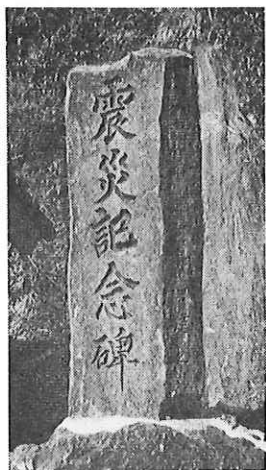 震災記念碑